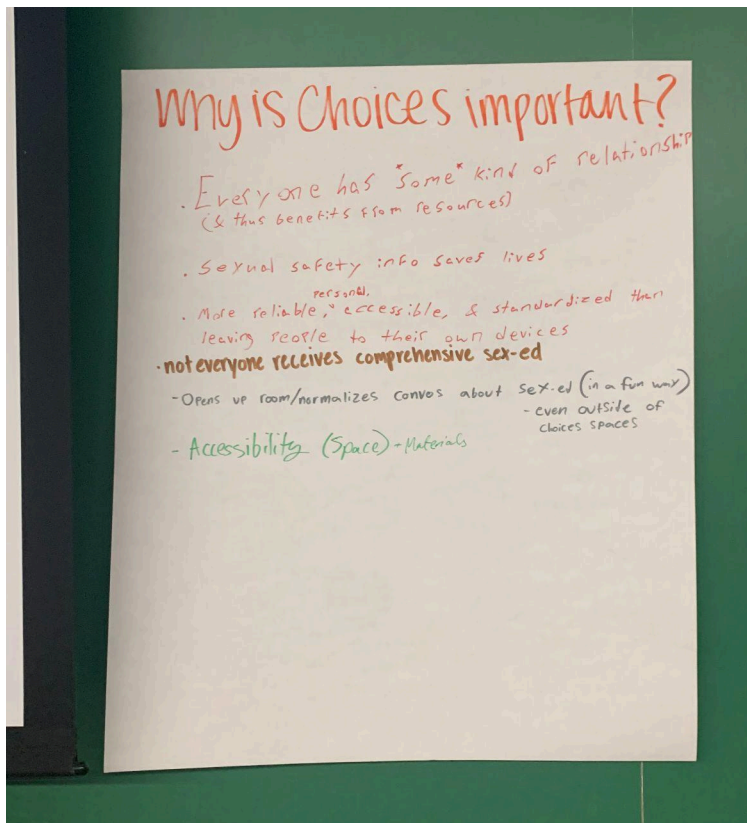 Why is Choices important?
. Everyone has *some* kind of relationship
(& thus benefits from resources)
. Sexual safety info saves lives
personal,
. More reliable, ^ accessible, & standardized than
leaving people to their own devices
· not everyone receives comprehensive sex-ed
- Opens up room/normalizes convos about sex-ed (in a fun way)
- even outside of
choices spaces
- Accessibility (Space) - Materials